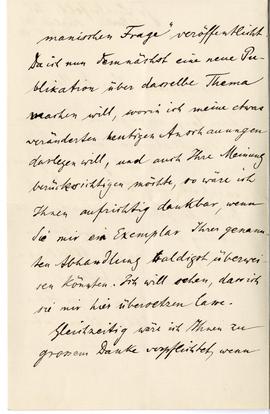 manischen Frage" veröffentlicht.
Da ich nun demnächst eine neue Pu-
blikation über dasselbe Thema
machen will, worin ich meine etwas
veränderten heutigen Anschauungen
darlegen will, und auch Ihre Meinung
berücksichtigen möchte, so wäre ich
Ihnen aufrichtig dankbar, wenn
Sie mir ein Exemplar Ihrer genann-
ten Abhandlung baldigst überwei-
sen könnten. Ich will sehen, dass ich
sie mir hier übersetzen lasse.
Gleichzeitig wäre ich Ihnen zu
grossem Danke verpflichtet, wenn